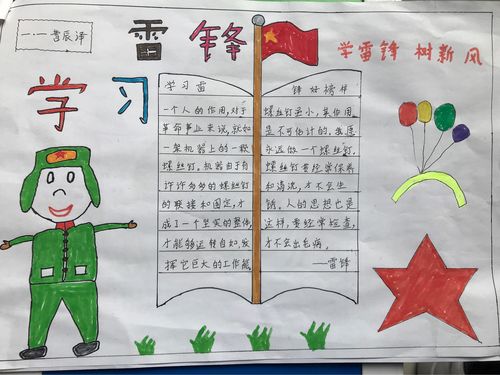 一·一 曹辰泽
雷锋
学雷锋 树新风
学习
学习雷
一个人的作用,对于
革命事业来说,就如
一架机器上的一颗
螺丝钉。机器由于有
许许多多的螺丝钉
的联接和固定,才
成了一个坚实的整体,
才能够运转自如,发
挥它巨大的工作能
锋好榜样
螺丝钉虽小,其作用
是不可估计的。我愿
永远做一个螺丝钉。
螺丝钉要经常保养
和清洗,才不会生
锈。人的思想也是
这样,要经常检查,
才不会出毛病。
——雷锋